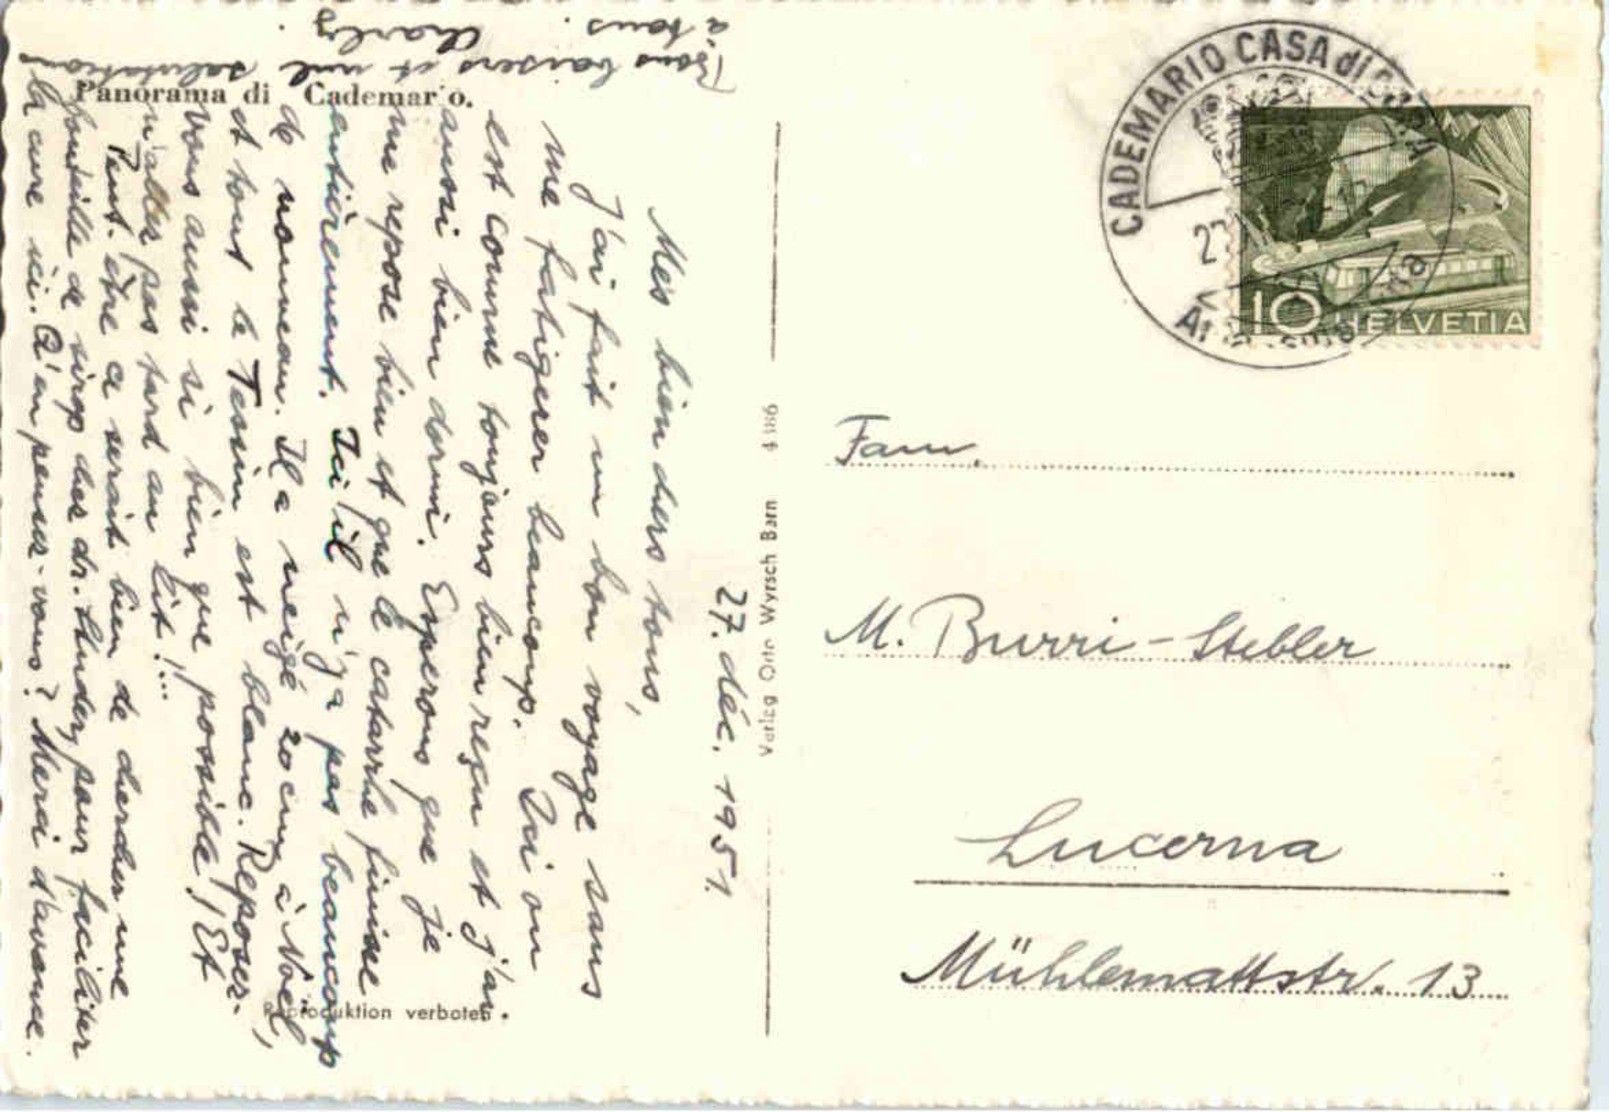 Panorama di Cademario.
27. déc. 1951.
Mes bien chers tous,
J'ai fait un bon voyage sans
me fatiguer beaucoup. Ici on
est comme toujours bien reçu et j'ai
aussi bien dormi. Esperons que je
me repose bien et que le catarrhe finisse
entièrement. Ici il n'y a pas beaucoup
de nouveau. Il a neigé 20 cm, à Noël,
et tout le Tessin est blanc. Reposez-
vous aussi si bien que possible! Et
n'allez pas tard au lit!...
Peut-être ce serait bien de chercher une
bouteille de sirop chez dr. Studer, pour faciliter
la cure ici. Qu'en pensez-vous? Merci d'avance.
Bons baisers et mil salutations
à tous. Charly.
Reproduktion verboten.
Verlag Otto Wyrsch Bern 4386
CADEMARIO CASA di CURA
10 HELVETIA
Fam.
M. Burri-Stebler
Lucerna
Mühlemattstr. 13